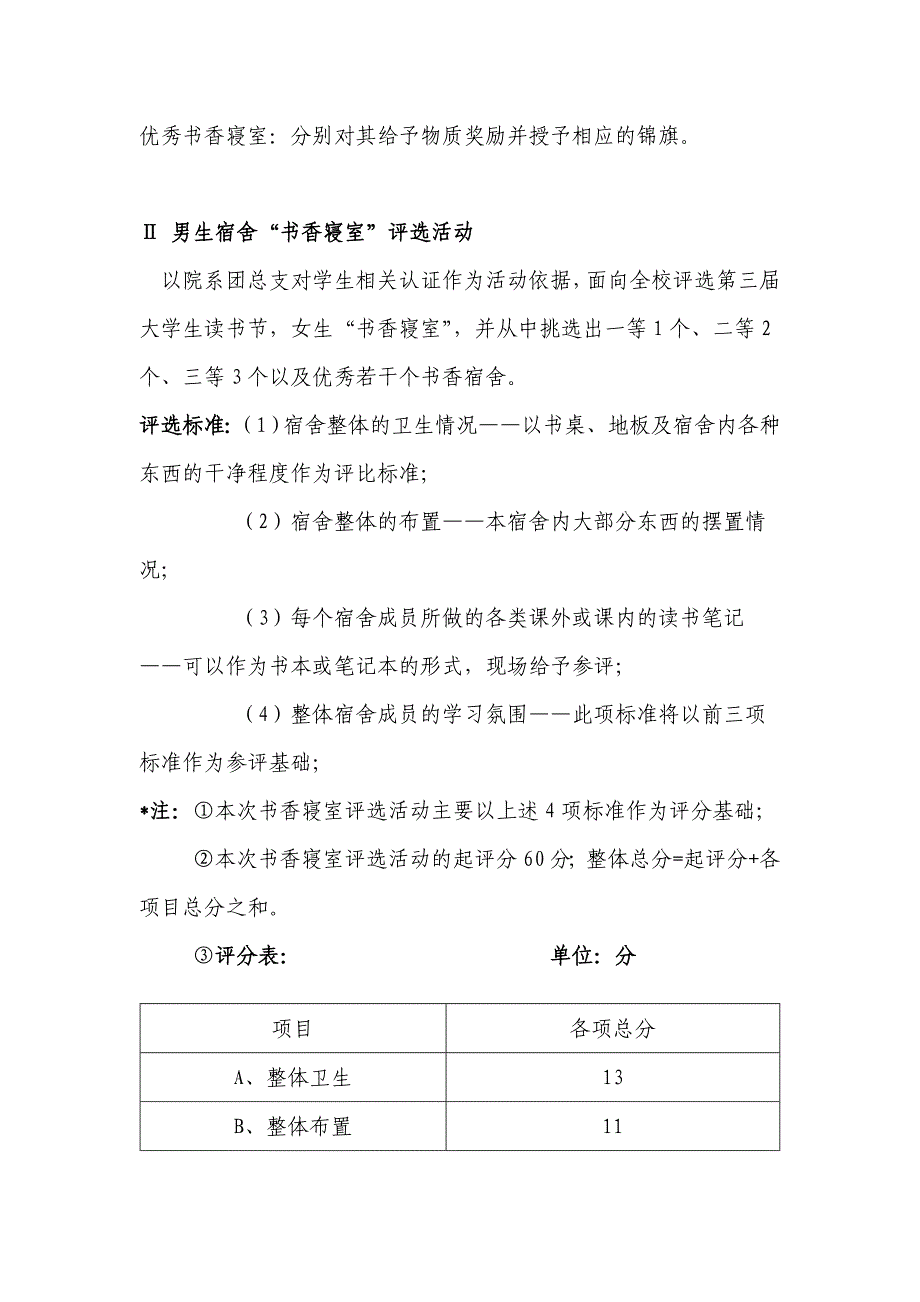 优秀书香寝室：分别对其给予物质奖励并授予相应的锦旗。
Ⅱ 男生宿舍“书香寝室”评选活动
以院系团总支对学生相关认证作为活动依据，面向全校评选第三届
大学生读书节，女生“书香寝室”，并从中挑选出一等1个、二等2
个、三等3个以及优秀若干个书香宿舍。
评选标准：（1）宿舍整体的卫生情况——以书桌、地板及宿舍内各种
东西的干净程度作为评比标准；
（2）宿舍整体的布置——本宿舍内大部分东西的摆置情
况；
（3）每个宿舍成员所做的各类课外或课内的读书笔记
——可以作为书本或笔记本的形式，现场给予参评；
（4）整体宿舍成员的学习氛围——此项标准将以前三项
标准作为参评基础；
*注：①本次书香寝室评选活动主要以上述4项标准作为评分基础；
②本次书香寝室评选活动的起评分60分；整体总分=起评分+各
项目总分之和。
③评分表： 单位：分
项目 各项总分
A、整体卫生 13
B、整体布置 11